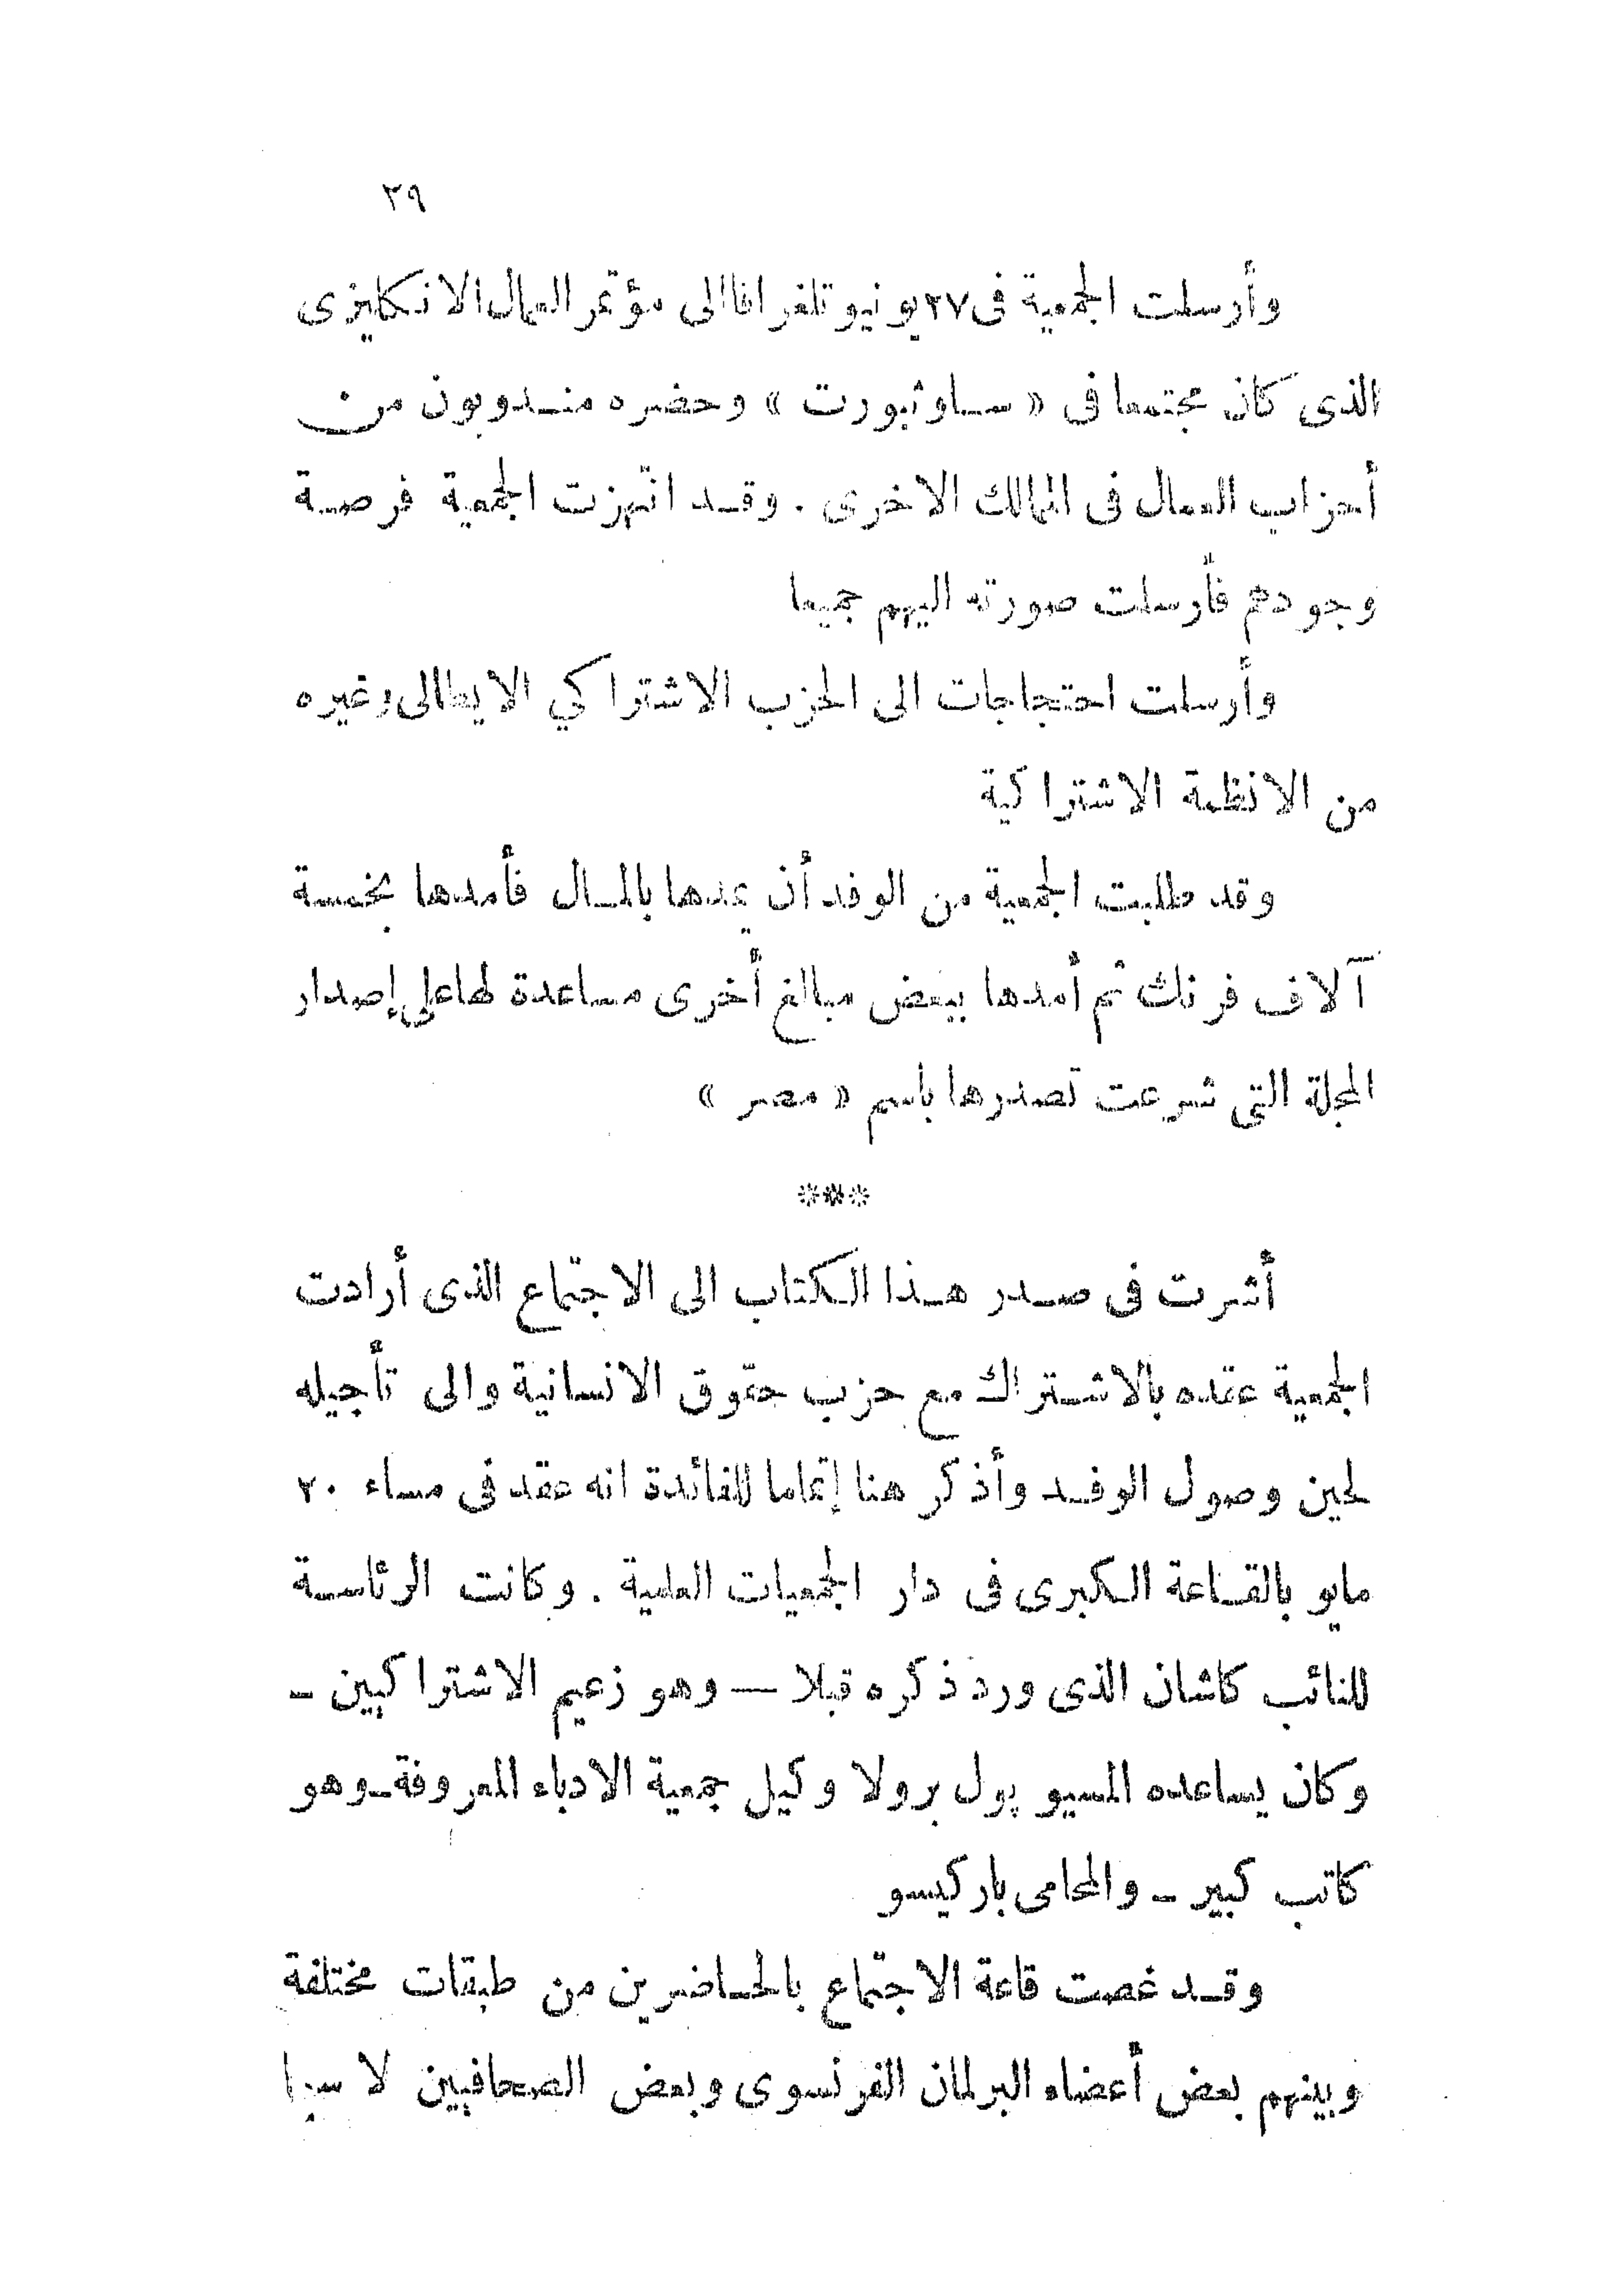 ٢٩
وأرسلت الجمعية فى ٢٧ يونيو تلغرافا الى مؤتمر العمال الانكليزى
الذى كان مجتمعا فى « ساوثبورت » وحضره مندوبون من
أحزاب العمال فى الممالك الاخرى . وقد انتهزت الجمعية فرصة
وجودهم فأرسلت صورته اليهم جميعا
وأرسلت احتجاجات الى الحزب الاشتراكي الايطالى وغيره
من الانظمة الاشتراكية
وقد طلبت الجمعية من الوفد أن يمدها بالمال فأمدها بخمسة
آلاف فرنك ثم أمدها ببعض مبالغ أخرى مساعدة لها على إصدار
المجلة التى شرعت تصدرها باسم « مصر »
***
أشرت فى صدر هذا الكتاب الى الاجتماع الذى أرادت
الجمعية عقده بالاشتراك مع حزب حقوق الانسانية والى تأجيله
لحين وصول الوفد وأذكر هنا إتماما للفائدة انه عقد فى مساء ٢٠
مايو بالقاعة الكبرى فى دار الجمعيات العلمية . وكانت الرئاسة
للنائب كاشان الذى ورد ذكره قبلا — وهو زعيم الاشتراكيين -
وكان يساعده المسيو پول برولا وكيل جمعية الادباء المعروفة - وهو
كاتب كبير - والمحامى باركيسو
وقد غصت قاعة الاجتماع بالحاضرين من طبقات مختلفة
وبينهم بعض أعضاء البرلمان الفرنسوى وبعض الصحافيين لا سيما